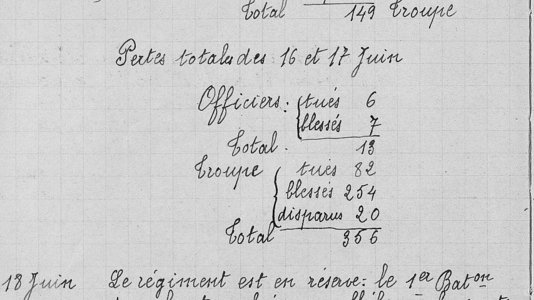 Total 149 Troupe
Pertes totales des 16 et 17 Juin
Officiers: tués 6
blessés 7
Total. 13
Troupe tués 82
blessés 254
disparus 20
Total 356
18 Juin Le régiment est en réserve: le 1er Baton